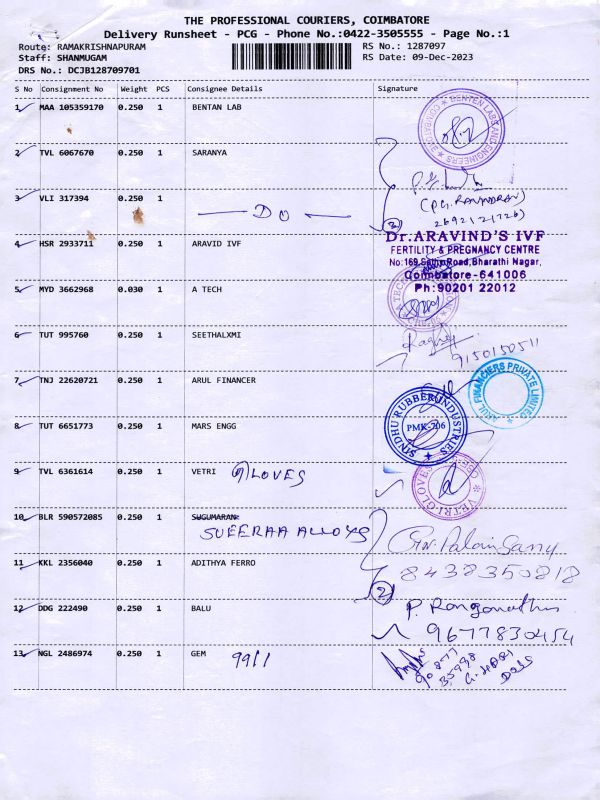 THE PROFESSIONAL COURIERS, COIMBATORE
Delivery Runsheet - PCG - Phone No.:0422-3505555 - Page No.:1
Route: RAMAKRISHNAPURAM
RS No.: 1287097
Staff: SHANMUGAM
RS Date: 09-Dec-2023
DRS No.: DCJB128709701
S No Consignment No Weight PCS Consignee Details Signature
1 MAA 105359170 0.250 1 BENTAN LAB
BENTEN LABS AND ENGINEERS
2 TVL 6067670 0.250 1 SARANYA
3 VLI 317394 0.250 1 DO
(2)
4 HSR 2933711 0.250 1 ARAVID IVF
Dr.ARAVIND'S IVF
FERTILITY & PREGNANCY CENTRE
No:169,Sathy Road,Bharathi Nagar,
Coimbatore-641006
Ph:90201 22012
5 MYD 3662968 0.030 1 A TECH
6 TUT 995760 0.250 1 SEETHALXMI
9150150511
7 TNJ 22620721 0.250 1 ARUL FINANCER
ARUL FINANCIERS PRIVATE LIMITED
8 TUT 6651773 0.250 1 MARS ENGG
SINDHU RUBBER INDUSTRIES
PMK-706
9 TVL 6361614 0.250 1 VETRI GLOVES
VETRI GLOVES
10 BLR 590572085 0.250 1 SUGUMARAN
SUEERAA ALLOYS
11 KKL 2356040 0.250 1 ADITHYA FERRO
8438350818
12 DDG 222490 0.250 1 BALU
(2)
P. Ranganathan
9677830454
13 NGL 2486974 0.250 1 GEM 9911